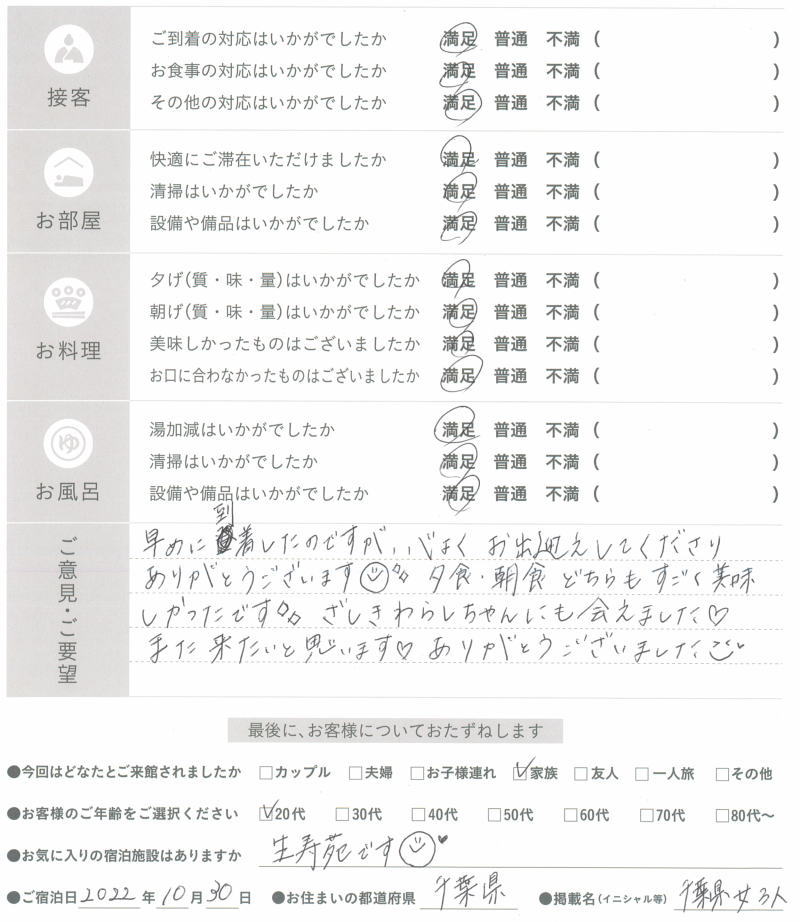 接客
ご到着の対応はいかがでしたか 満足 普通 不満 ( )
お食事の対応はいかがでしたか 満足 普通 不満 ( )
その他の対応はいかがでしたか 満足 普通 不満 ( )
お部屋
快適にご滞在いただけましたか 満足 普通 不満 ( )
清掃はいかがでしたか 満足 普通 不満 ( )
設備や備品はいかがでしたか 満足 普通 不満 ( )
お料理
夕げ(質・味・量)はいかがでしたか 満足 普通 不満 ( )
朝げ(質・味・量)はいかがでしたか 満足 普通 不満 ( )
美味しかったものはございましたか 満足 普通 不満 ( )
お口に合わなかったものはございましたか 満足 普通 不満 ( )
ゆ
お風呂
湯加減はいかがでしたか 満足 普通 不満 ( )
清掃はいかがでしたか 満足 普通 不満 ( )
設備や備品はいかがでしたか 満足 普通 不満 ( )
ご意見・ご要望
早めに到着したのですが、心よく お出迎えしてくださり
ありがとうございます 夕食・朝食 どちらも すごく美味
しかったです ざしきわらしちゃんにも会えました♡
また 来たいと思います♡ ありがとうございました
最後に、お客様についておたずねします
●今回はどなたとご来館されましたか □カップル □夫婦 □お子様連れ ☑家族 □友人 □一人旅 □その他
●お客様のご年齢をご選択ください ☑20代 □30代 □40代 □50代 □60代 □70代 □80代〜
●お気に入りの宿泊施設はありますか 生寿苑です
●ご宿泊日 2022 年 10 月 30 日 ●お住まいの都道府県 千葉県 ●掲載名(イニシャル等) 千葉県女3人